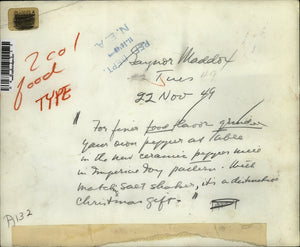 2 col
food
TYPE
RED DEPT.
N.E.A.
Gaynor Maddox
Tues
22 Nov 49
" For finer food flavor grinder
your own pepper at table
in the new ceramic pepper mill
in Imperial Ivy pattern. With
matching salt shaker, it's a distinctive
Christmas gift. "
A132